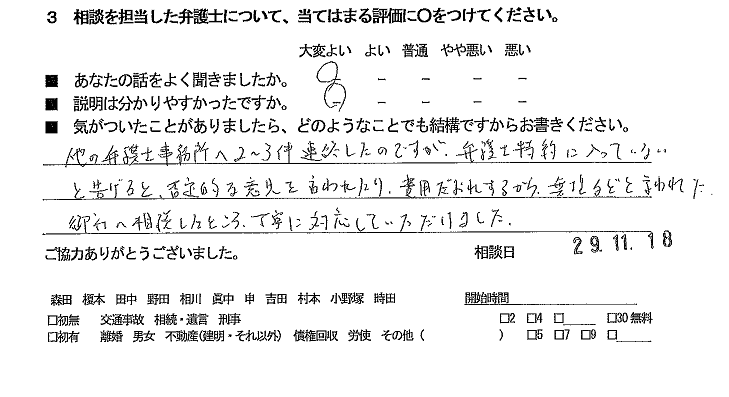 3 相談を担当した弁護士について、当てはまる評価に〇をつけてください。
大変よい よい 普通 やや悪い 悪い
■ あなたの話をよく聞きましたか。 － － － －
■ 説明は分かりやすかったですか。 － － － －
■ 気がついたことがありましたら、どのようなことでも結構ですからお書きください。
他の弁護士事務所へ2～3件連絡したのですが、弁護士特約に入っていない
と告げると、否定的な意見を言われたり、費用だおれするから、無理などと言われた。
御社へ相談したところ、丁寧に対応していただけました。
ご協力ありがとうございました。 相談日 29.11.18
森田 榎本 田中 野田 相川 眞中 申 吉田 村本 小野塚 時田 開始時間
□初無 交通事故 相続・遺言 刑事 □2 □4 □____ □30無料
□初有 離婚 男女 不動産(建明・それ以外) 債権回収 労使 その他 ( ) □5 □7 □9 □____